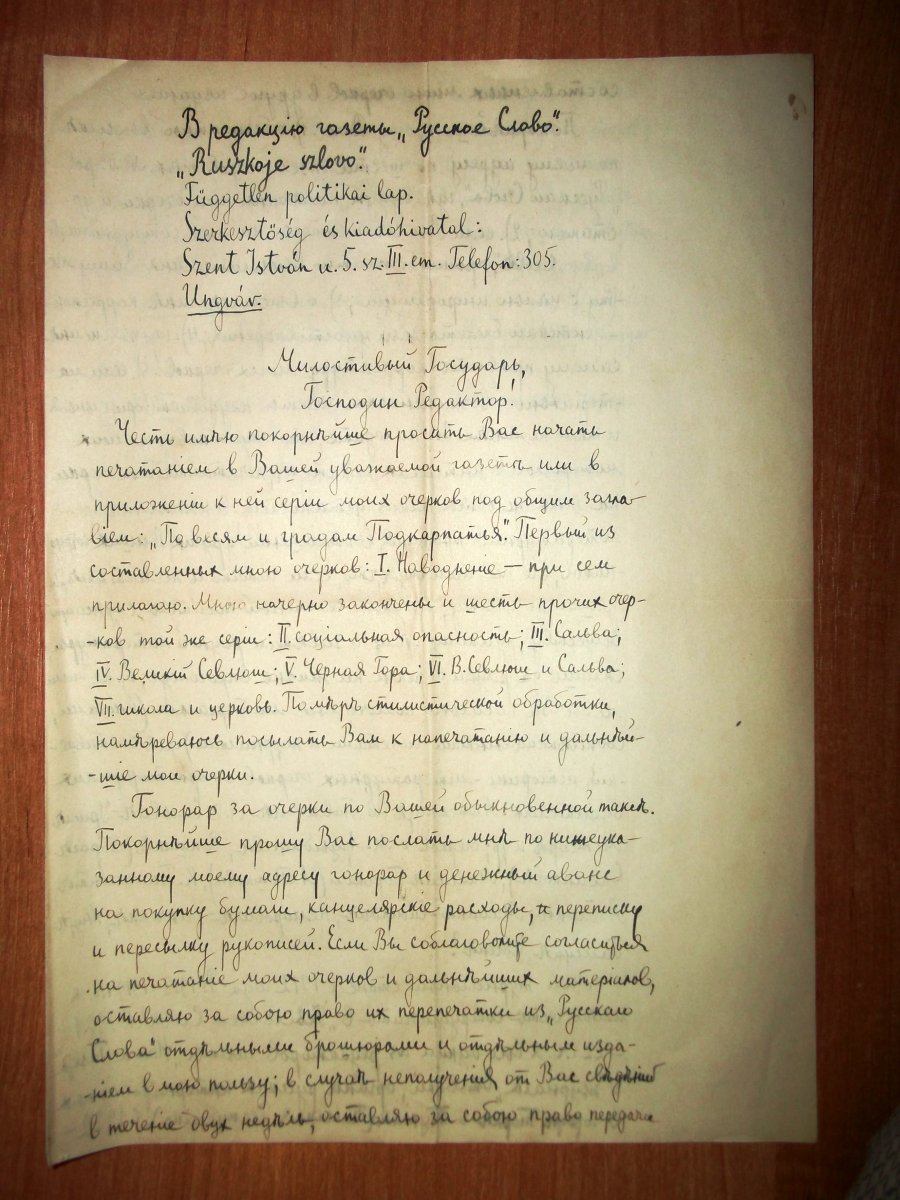 В редакцію газеты „Русское Слово".
„Ruszkoje szlovo".
Független politikai lap.
Szerkesztőség és kiadóhivatal:
Szent István u. 5. sz. III. em. Telefon: 305.
Ungvár.
Милостивый Государь,
Господин Редактор!
Честь имѣю покорнѣйше просить Вас начать
печатаніем в Вашей уважаемой газетѣ или в
приложеніи к ней серіи моих очерков под общим загла-
віем: „По весям и градам Подкарпатья". Первый из
составленных мною очерков: I. Наводненіе — при сем
прилагаю. Мною начерно закончены и шесть прочих очер-
-ков той же серіи: II. соціальная опасность; III. Сальва;
IV. Великій Севлюш; V. Черная Гора; VI. В. Севлюш и Сальва;
VII. школа и церковь. По мѣрѣ стилистической обработки,
намѣреваюсь посылать Вам к напечатанию и дальнѣй-
-шіе мои очерки.
Гонорар за очерки по Вашей обыкновенной таксѣ.
Покорнѣйше прошу Вас послать мнѣ по нижеука-
занному моему адресу гонорар и денежный аванс
на покупку бумаги, канцелярскіе расходы, переписку
и пересылку рукописей. Если Вы соблаговолите согласиться
на печатаніе моих очерков и дальнѣйших матеріалов,
оставляю за собою право их перепечатки из „Русскаго
Слова" отдѣльными брошюрами и отдѣльным изда-
-ніем в мою пользу; в случаѣ неполученія от Вас свѣдѣній
в течение двух недѣль, оставляю за собою право передачи